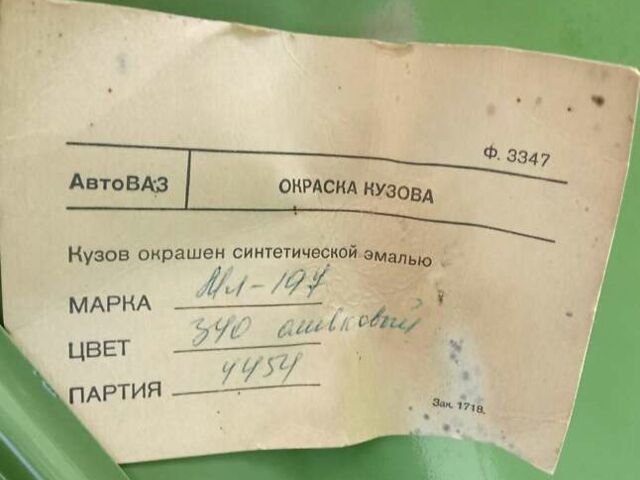 Ф. 3347
АвтоВАЗ ОКРАСКА КУЗОВА
Кузов окрашен синтетической эмалью
МАРКА Мл-197
ЦВЕТ 340 оливковый
ПАРТИЯ 4454
Зак. 1718.